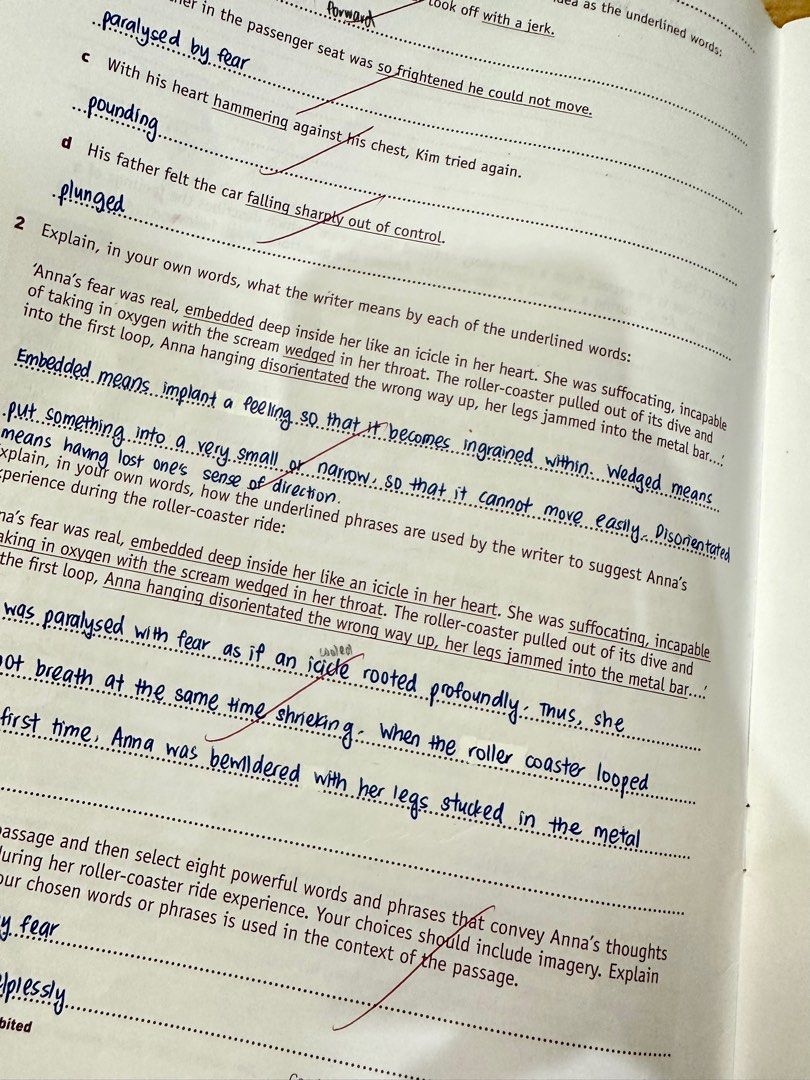 idea as the underlined words:
took off with a jerk.
forward
in the passenger seat was so frightened he could not move.
paralysed by fear
c With his heart hammering against his chest, Kim tried again.
pounding
d His father felt the car falling sharply out of control.
plunged
2 Explain, in your own words, what the writer means by each of the underlined words:
‘Anna’s fear was real, embedded deep inside her like an icicle in her heart. She was suffocating, incapable
of taking in oxygen with the scream wedged in her throat. The roller-coaster pulled out of its dive and
into the first loop, Anna hanging disorientated the wrong way up, her legs jammed into the metal bar...’
Embedded means implant a feeling so that it becomes ingrained within. Wedged means
put something into a very small or narrow, so that it cannot move easily. Disorientated
means having lost one's sense of direction.
xplain, in your own words, how the underlined phrases are used by the writer to suggest Anna’s
xperience during the roller-coaster ride:
na’s fear was real, embedded deep inside her like an icicle in her heart. She was suffocating, incapable
aking in oxygen with the scream wedged in her throat. The roller-coaster pulled out of its dive and
the first loop, Anna hanging disorientated the wrong way up, her legs jammed into the metal bar...’
was paralysed with fear as if an icicle rooted profoundly. Thus, she
ot breath at the same time shrieking. When the roller coaster looped
first time, Anna was bewildered with her legs stucked in the metal
assage and then select eight powerful words and phrases that convey Anna’s thoughts
uring her roller-coaster ride experience. Your choices should include imagery. Explain
our chosen words or phrases is used in the context of the passage.
y fear
lplessly
bited